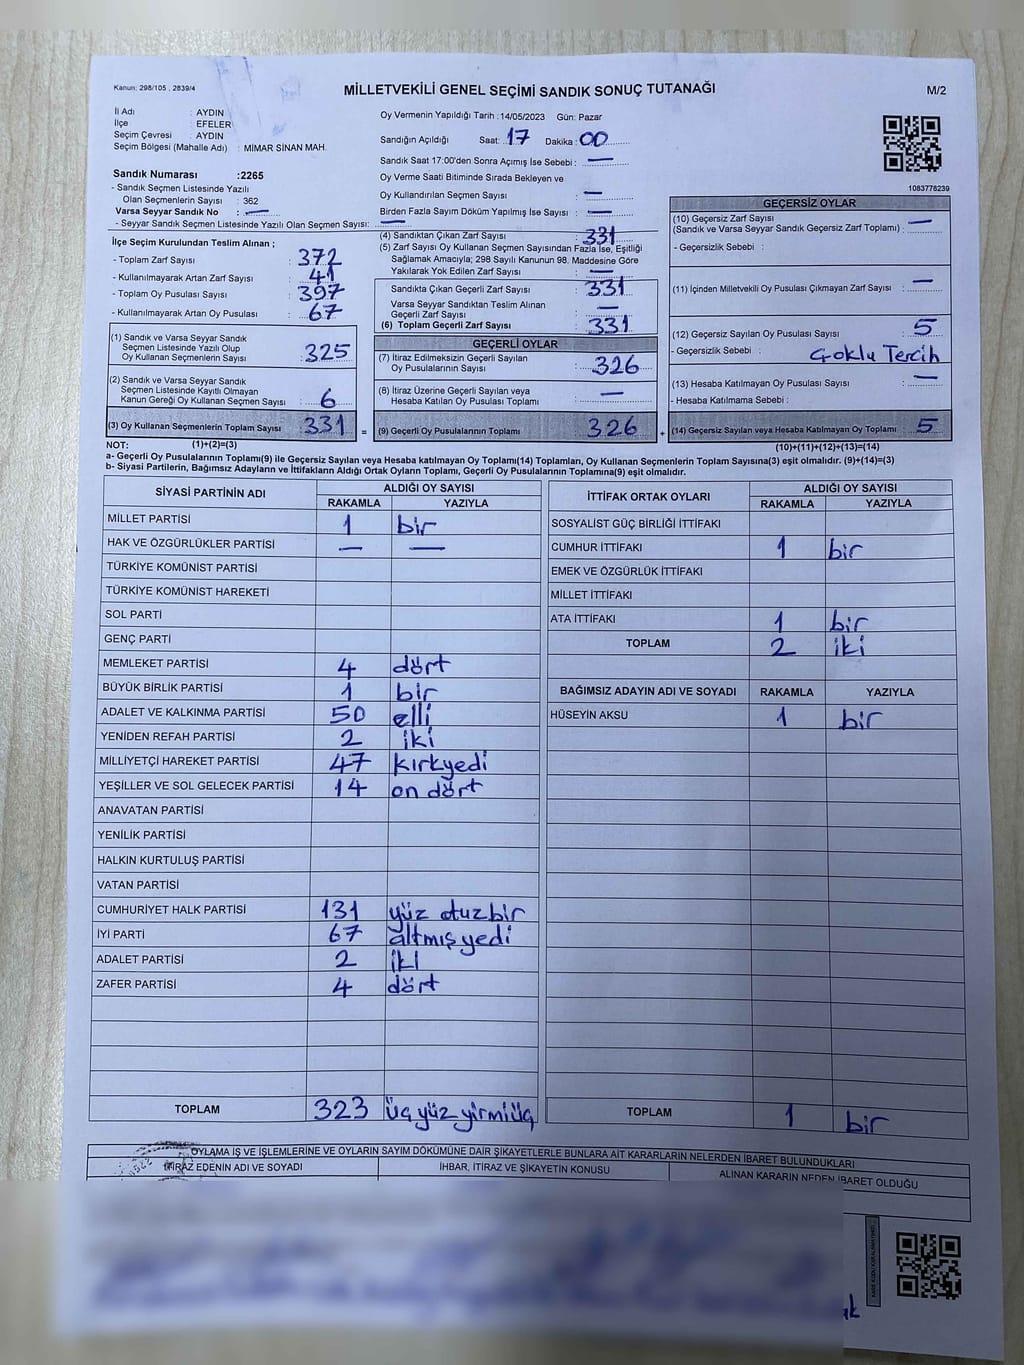 Kanun: 298/105 , 2839/4
MİLLETVEKİLİ GENEL SEÇİMİ SANDIK SONUÇ TUTANAĞI
M/2
İl Adı : AYDIN
İlçe : EFELER
Seçim Çevresi : AYDIN
Seçim Bölgesi (Mahalle Adı) : MİMAR SİNAN MAH.
Sandık Numarası :2265
- Sandık Seçmen Listesinde Yazılı
Olan Seçmenlerin Sayısı : 362
Varsa Seyyar Sandık No : —
- Seyyar Sandık Seçmen Listesinde Yazılı Olan Seçmen Sayısı: —
Oy Vermenin Yapıldığı Tarih : 14/05/2023 Gün: Pazar
Sandığın Açıldığı Saat: 17 Dakika : 00
Sandık Saat 17:00'den Sonra Açımış İse Sebebi : —
Oy Verme Saati Bitiminde Sırada Bekleyen ve
Oy Kullandırılan Seçmen Sayısı : —
Birden Fazla Sayım Döküm Yapılmış İse Sayısı : —
1083778239
İlçe Seçim Kurulundan Teslim Alınan ;
- Toplam Zarf Sayısı : 372
- Kullanılmayarak Artan Zarf Sayısı : 41
- Toplam Oy Pusulası Sayısı : 397
- Kullanılmayarak Artan Oy Pusulası : 67
(1) Sandık ve Varsa Seyyar Sandık
Seçmen Listesinde Yazılı Olup
Oy Kullanan Seçmenlerin Sayısı : 325
(2) Sandık ve Varsa Seyyar Sandık
Seçmen Listesinde Kayıtlı Olmayan
Kanun Gereği Oy Kullanan Seçmen Sayısı : 6
(3) Oy Kullanan Seçmenlerin Toplam Sayısı : 331
(4) Sandıktan Çıkan Zarf Sayısı : 331
(5) Zarf Sayısı Oy Kullanan Seçmen Sayısından Fazla İse, Eşitliği
Sağlamak Amacıyla; 298 Sayılı Kanunun 98. Maddesine Göre
Yakılarak Yok Edilen Zarf Sayısı : —
Sandıkta Çıkan Geçerli Zarf Sayısı : 331
Varsa Seyyar Sandıktan Teslim Alınan
Geçerli Zarf Sayısı : —
(6) Toplam Geçerli Zarf Sayısı : 331
GEÇERLİ OYLAR
(7) İtiraz Edilmeksizin Geçerli Sayılan
Oy Pusulalarının Sayısı : 326
(8) İtiraz Üzerine Geçerli Sayılan veya
Hesaba Katılan Oy Pusulası Toplamı : —
= (9) Geçerli Oy Pusulalarının Toplamı : 326
GEÇERSİZ OYLAR
(10) Geçersiz Zarf Sayısı
(Sandık ve Varsa Seyyar Sandık Geçersiz Zarf Toplamı) : —
- Geçersizlik Sebebi :
(11) İçinden Milletvekili Oy Pusulası Çıkmayan Zarf Sayısı : —
(12) Geçersiz Sayılan Oy Pusulası Sayısı : 5
- Geçersizlik Sebebi : Çoklu Tercih
(13) Hesaba Katılmayan Oy Pusulası Sayısı : —
- Hesaba Katılmama Sebebi :
+ (14) Geçersiz Sayılan veya Hesaba Katılmayan Oy Toplamı : 5
NOT: (1)+(2)=(3)
(10)+(11)+(12)+(13)=(14)
a- Geçerli Oy Pusulalarının Toplamı(9) ile Geçersiz Sayılan veya Hesaba katılmayan Oy Toplamı(14) Toplamları, Oy Kullanan Seçmenlerin Toplam Sayısına(3) eşit olmalıdır. (9)+(14)=(3)
b- Siyasi Partilerin, Bağımsız Adayların ve İttifakların Aldığı Ortak Oyların Toplamı, Geçerli Oy Pusulalarının Toplamına(9) eşit olmalıdır.
SİYASİ PARTİNİN ADI ALDIĞI OY SAYISI
RAKAMLA YAZIYLA
MİLLET PARTİSİ 1 bir
HAK VE ÖZGÜRLÜKLER PARTİSİ — —
TÜRKİYE KOMÜNİST PARTİSİ
TÜRKİYE KOMÜNİST HAREKETİ
SOL PARTİ
GENÇ PARTİ
MEMLEKET PARTİSİ 4 dört
BÜYÜK BİRLİK PARTİSİ 1 bir
ADALET VE KALKINMA PARTİSİ 50 elli
YENİDEN REFAH PARTİSİ 2 iki
MİLLİYETÇİ HAREKET PARTİSİ 47 kırkyedi
YEŞİLLER VE SOL GELECEK PARTİSİ 14 on dört
ANAVATAN PARTİSİ
YENİLİK PARTİSİ
HALKIN KURTULUŞ PARTİSİ
VATAN PARTİSİ
CUMHURİYET HALK PARTİSİ 131 yüz otuzbir
İYİ PARTİ 67 altmış yedi
ADALET PARTİSİ 2 iki
ZAFER PARTİSİ 4 dört
TOPLAM 323 üç yüz yirmiüç
İTTİFAK ORTAK OYLARI ALDIĞI OY SAYISI
RAKAMLA YAZIYLA
SOSYALİST GÜÇ BİRLİĞİ İTTİFAKI
CUMHUR İTTİFAKI 1 bir
EMEK VE ÖZGÜRLÜK İTTİFAKI
MİLLET İTTİFAKI
ATA İTTİFAKI 1 bir
TOPLAM 2 iki
BAĞIMSIZ ADAYIN ADI VE SOYADI RAKAMLA YAZIYLA
HÜSEYİN AKSU 1 bir
TOPLAM 1 bir
OYLAMA İŞ VE İŞLEMLERİNE VE OYLARIN SAYIM DÖKÜMÜNE DAİR ŞİKAYETLERLE BUNLARA AİT KARARLARIN NELERDEN İBARET BULUNDUKLARI
İTİRAZ EDENİN ADI VE SOYADI İHBAR, İTİRAZ VE ŞİKAYETİN KONUSU ALINAN KARARIN NEDEN İBARET OLDUĞU